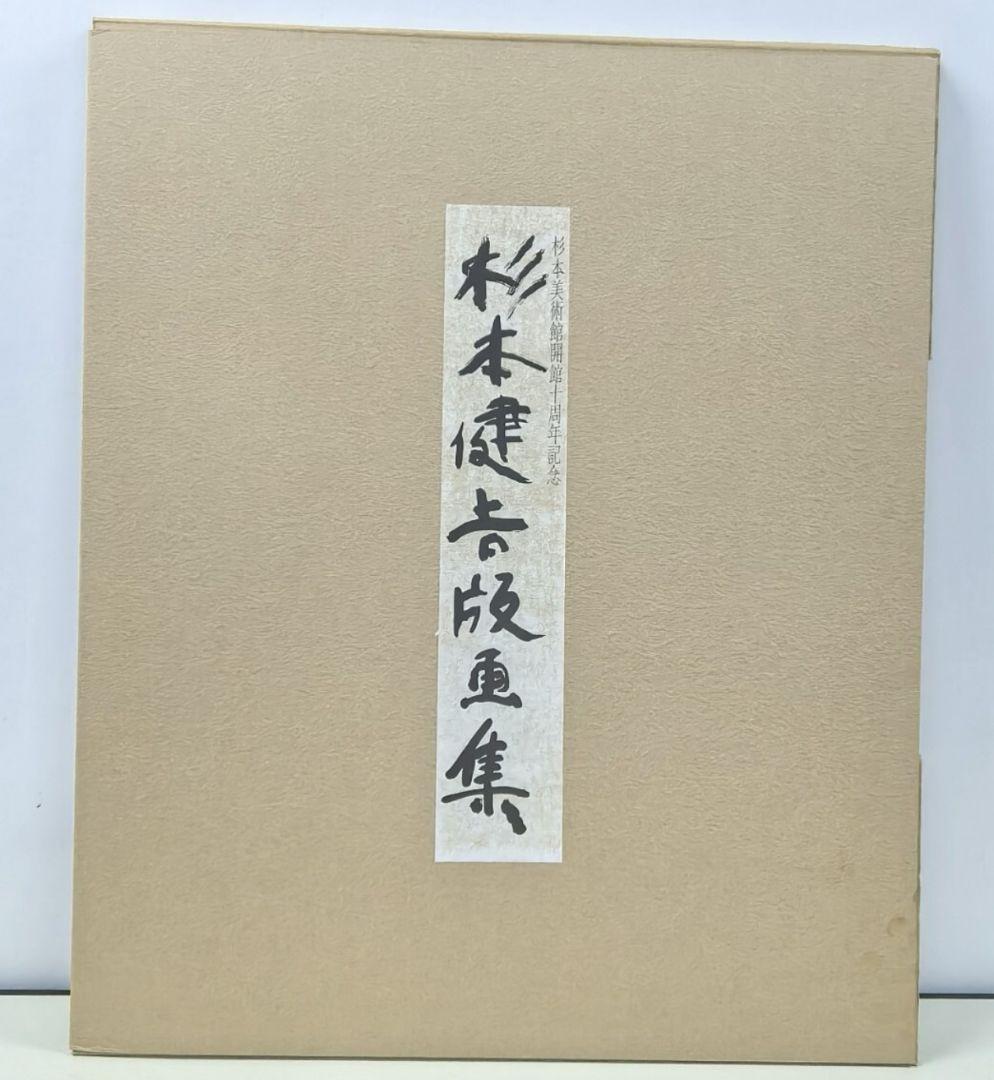 杉本美術館開館十周年記念
杉本健吉版画集